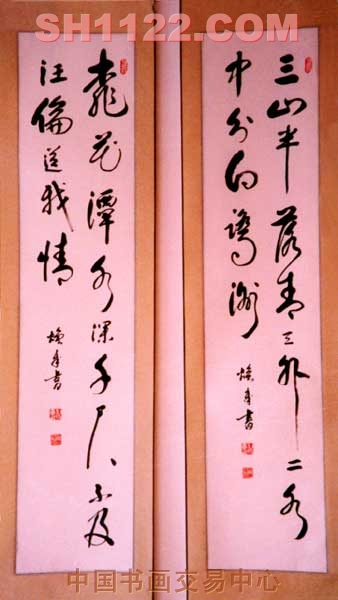 SH1122.COM
三山半落青天外二水
中分白鷺洲
桃花潭水深千尺不及
汪倫送我情
中国书画交易中心